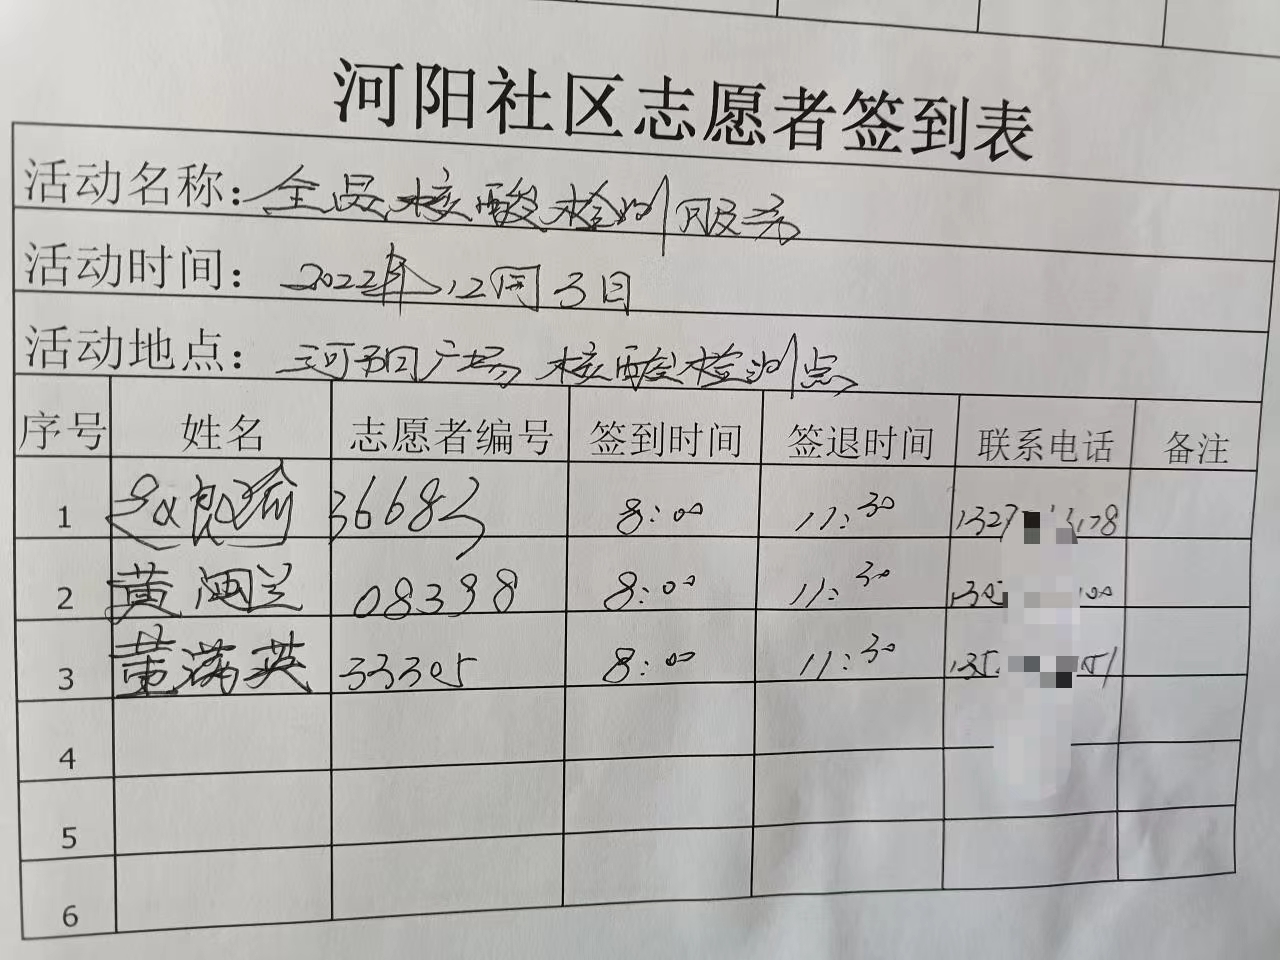 河阳社区志愿者签到表
活动名称：全员核酸检测服务
活动时间：2022年12月3日
活动地点：河阳广场 核酸检测点
序号 姓名 志愿者编号 签到时间 签退时间 联系电话 备注
1 36683 8:00 11:30
2 黄 兰 08338 8:00 11:30
3 董满英 33305 8:00 11:30
4
5
6